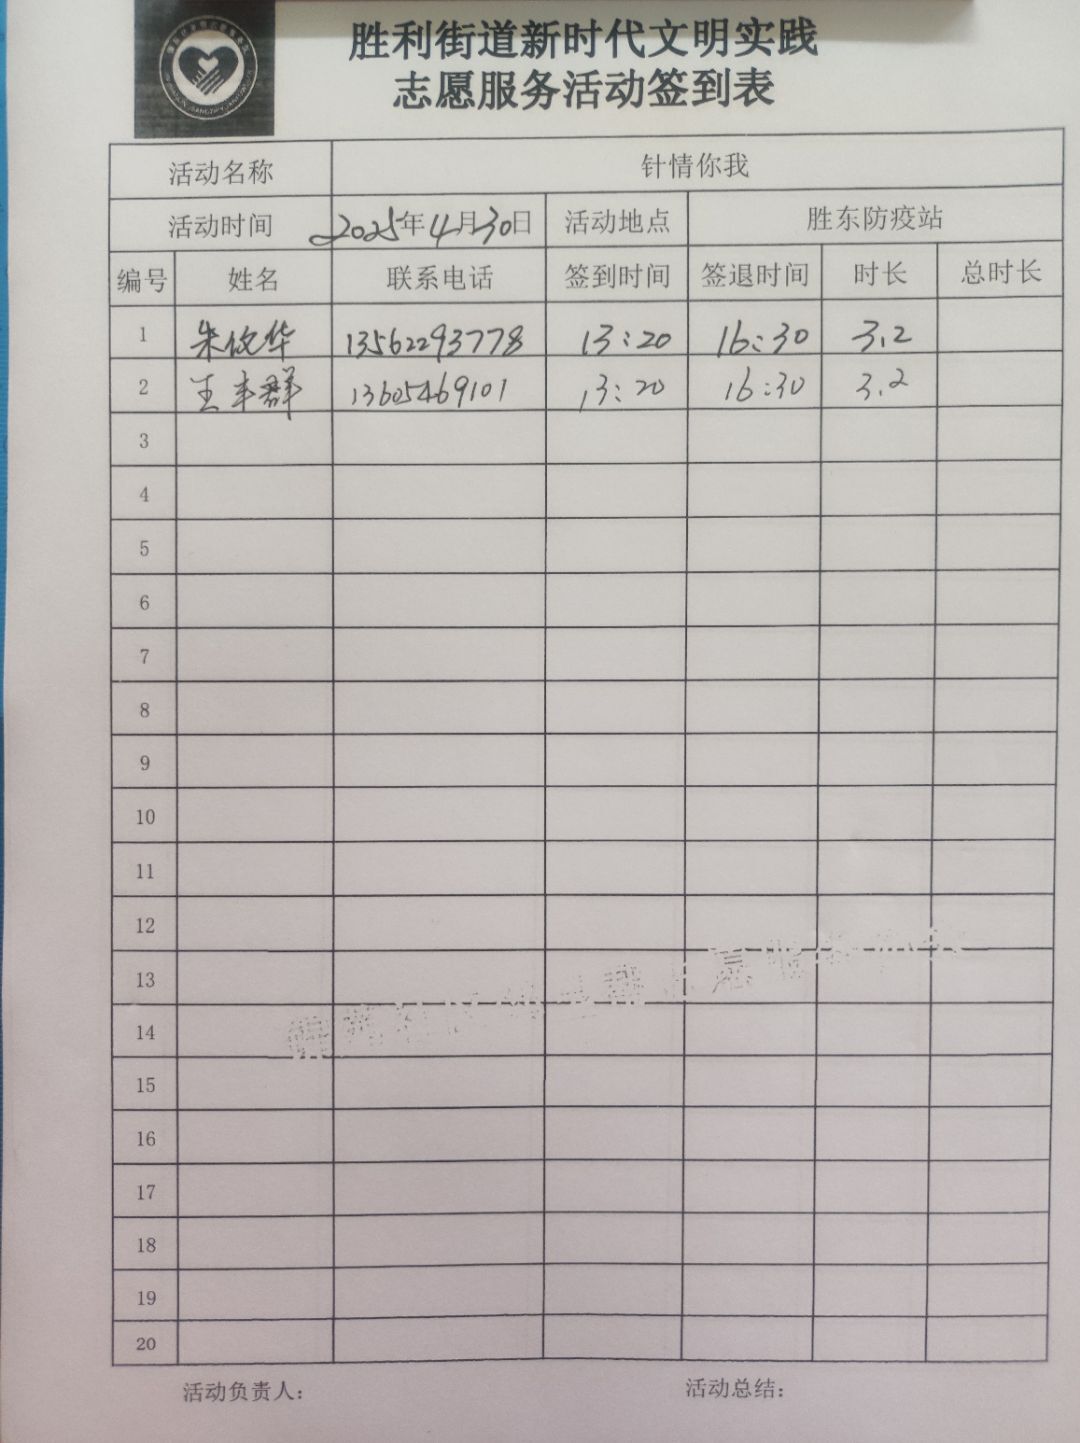 胜利街道新时代文明实践
志愿服务活动签到表
活动名称 针情你我
活动时间 2025年4月30日 活动地点 胜东防疫站
编号 姓名 联系电话 签到时间 签退时间 时长 总时长
1 朱 华 13562293778 13:20 16:30 3.2
2 王丰群 13605469101 13:20 16:30 3.2
3
4
5
6
7
8
9
10
11
12
13
14
15
16
17
18
19
20
活动负责人: 活动总结: